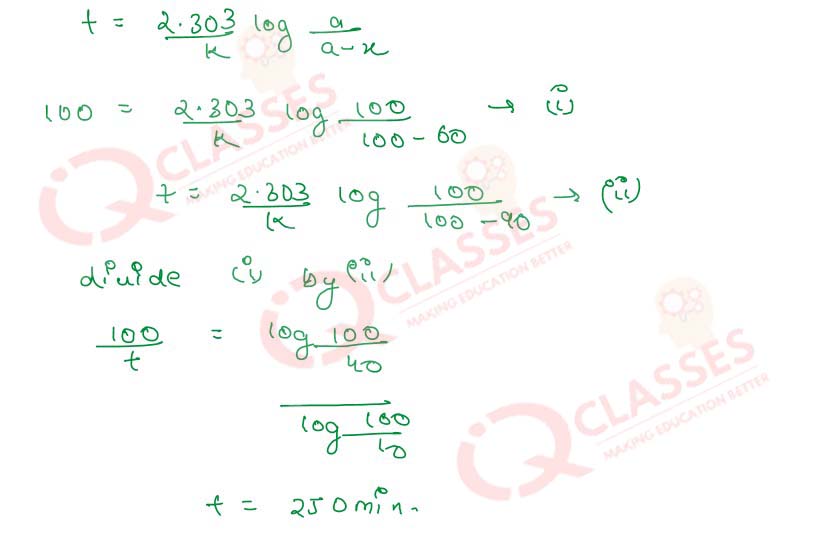 t = 2.303/k log a/a-x
100 = 2.303/k log 100/100-60 → (i)
t = 2.303/k log 100/100-90 → (ii)
divide (i) by (ii)
100/t = log 100/40
log 100/10
t = 250 min.
IQ CLASSES
MAKING EDUCATION BETTER
IQ CLASSES
MAKING EDUCATION BETTER
IQ CLASSES
MAKING EDUCATION BETTER